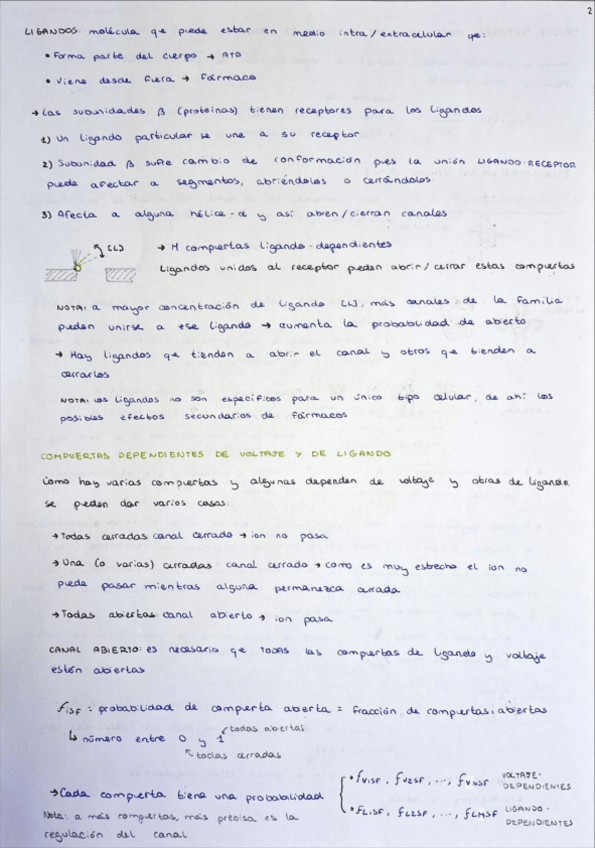 2
LIGANDOS: molécula que puede estar en medio intra/extracelular qe:
• Forma parte del cuerpo → ATD
• Viene desde fuera → fármaco
→ Las subunidades β (proteínas) tienen receptores para los ligandos
1) Un ligando particular se une a su receptor
2) Subunidad β sufre cambio de conformación pues la unión LIGANDO-RECEPTOR
puede afectar a segmentos, abriéndolos o cerrándolos.
3) Afecta a alguna hélice-α y así abren/cierran canales
[L] → M compuertas ligando-dependientes
Ligandos unidos al receptor pueden abrir/cerrar estas compuertas
NOTA: a mayor concentración de ligando [L], más canales de la familia
pueden unirse a ese ligando → aumenta la probabilidad de abierto
→ Hay ligandos que tienden a abrir el canal y otros que tienden a
cerrarlos
NOTA: los ligandos no son específicos para un único tipo celular, de ahí los
posibles efectos secundarios de fármacos
COMPUERTAS DEPENDIENTES DE VOLTAJE Y DE LIGANDO
Como hay varias compuertas y algunas dependen de voltaje y otras de ligando,
se pueden dar varios casos:
→ Todas cerradas: canal cerrado → ion no pasa
→ Una (o varias) cerradas: canal cerrado → como es muy estrecho el ion no
puede pasar mientras alguna permanezca cerrada
→ Todas abiertas: canal abierto → ion pasa
CANAL ABIERTO: es necesario qe TODAS las compuertas de ligando y voltaje
estén abiertas
fisf : probabilidad de compuerta abierta = fracción de compuertas abiertas
↳ número entre 0 y 1 ← todas abiertas
↖ todas cerradas
→ Cada compuerta tiene una probabilidad
• fV1SF, fV2SF, ..., fVNSF VOLTAJE-DEPENDIENTES
• fL1SF, fL2SF, ..., fLMSF LIGANDO-DEPENDIENTES
Nota: a más compuertas, más precisa es la
regulación del canal